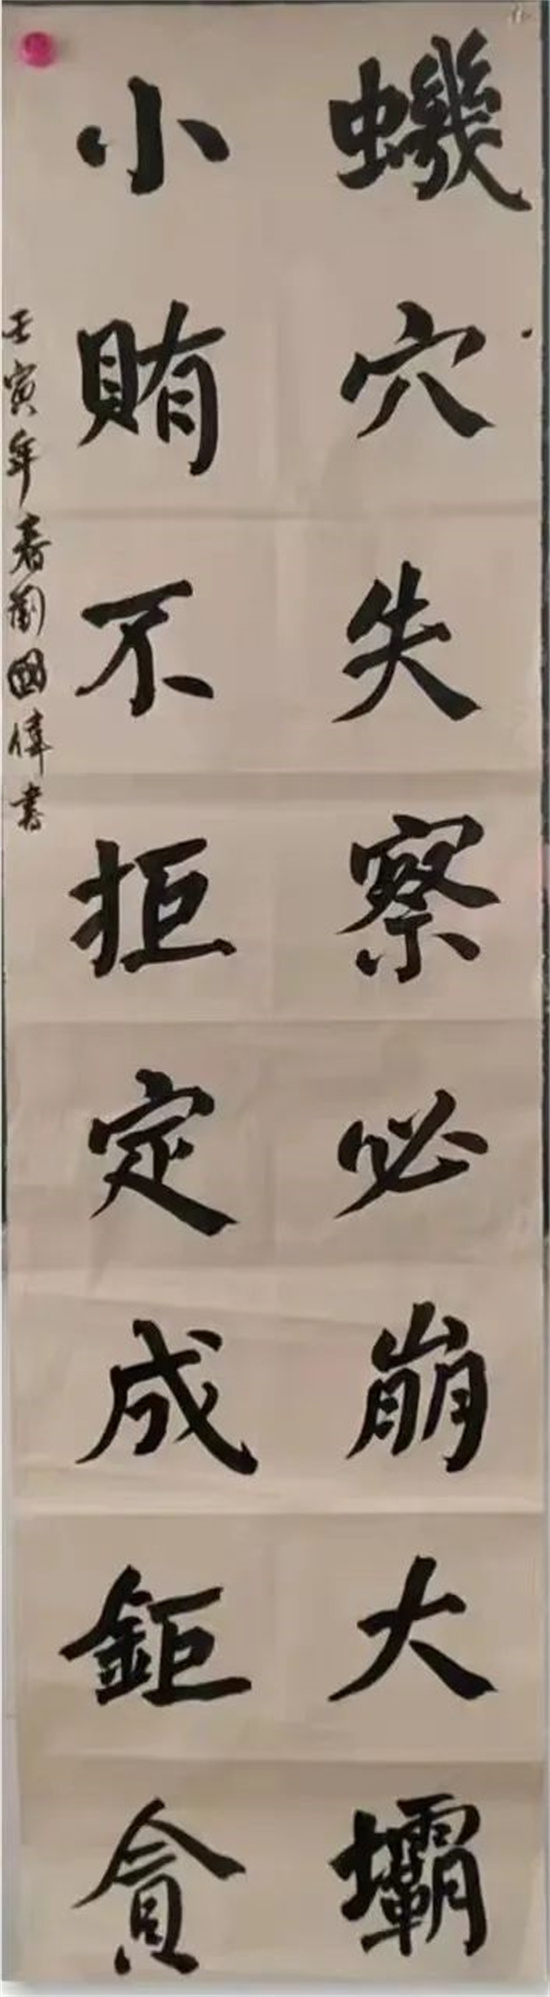 蟣穴失察必崩大壩
小賄不拒定成鉅貪
壬寅年春劉國偉書